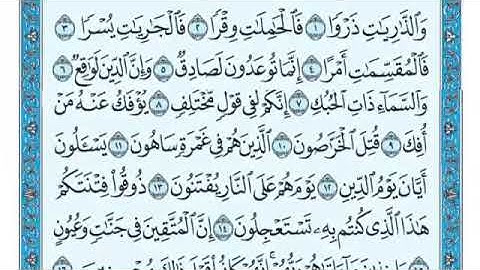 وَٱلذَّٰرِيَٰتِ ذَرْوًا ١ فَٱلْحَٰمِلَٰتِ وِقْرًا ٢ فَٱلْجَٰرِيَٰتِ يُسْرًا ٣
فَٱلْمُقَسِّمَٰتِ أَمْرًا ٤ إِنَّمَا تُوعَدُونَ لَصَادِقٌ ٥ وَإِنَّ ٱلدِّينَ لَوَٰقِعٌ ٦
وَٱلسَّمَآءِ ذَاتِ ٱلْحُبُكِ ٧ إِنَّكُمْ لَفِى قَوْلٍ مُّخْتَلِفٍ ٨ يُؤْفَكُ عَنْهُ مَنْ
أُفِكَ ٩ قُتِلَ ٱلْخَرَّٰصُونَ ١٠ ٱلَّذِينَ هُمْ فِى غَمْرَةٍ سَاهُونَ ١١ يَسْـَٔلُونَ
أَيَّانَ يَوْمُ ٱلدِّينِ ١٢ يَوْمَ هُمْ عَلَى ٱلنَّارِ يُفْتَنُونَ ١٣ ذُوقُوا۟ فِتْنَتَكُمْ
هَٰذَا ٱلَّذِى كُنتُم بِهِۦ تَسْتَعْجِلُونَ ١٤ إِنَّ ٱلْمُتَّقِينَ فِى جَنَّٰتٍ وَعُيُونٍ